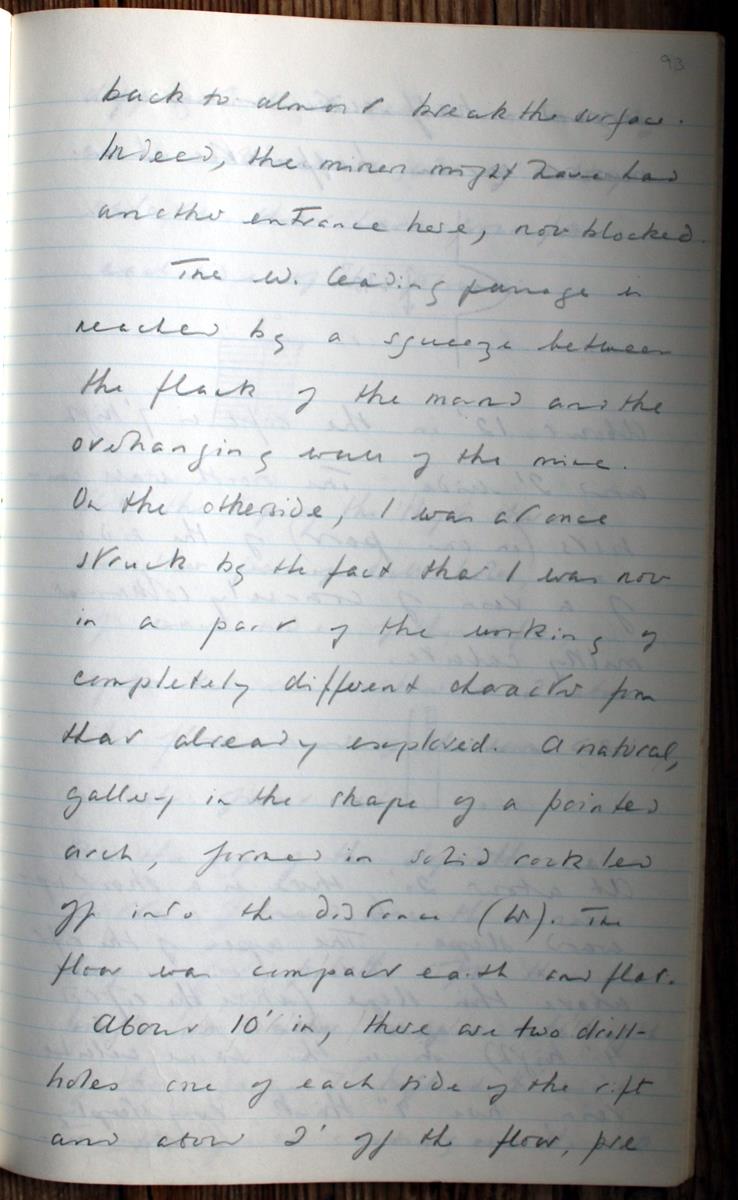 93
back to almost break the surface.
Indeed, the miners might have had
another entrance here, now blocked.
The W. leading passage is
reached by a squeeze between
the flank of the mound and the
overhanging wall of the mine.
On the otherside, I was at once
struck by the fact that I was now
in a part of the working of
completely different character from
that already explored. A natural,
gallery in the shape of a pointed
arch, formed in solid rock led
off into the distance (W). The
floor was compact earth and flat.
About 10' in, there are two drill-
holes one of each side of the rift
and about 2' off the floor, pre